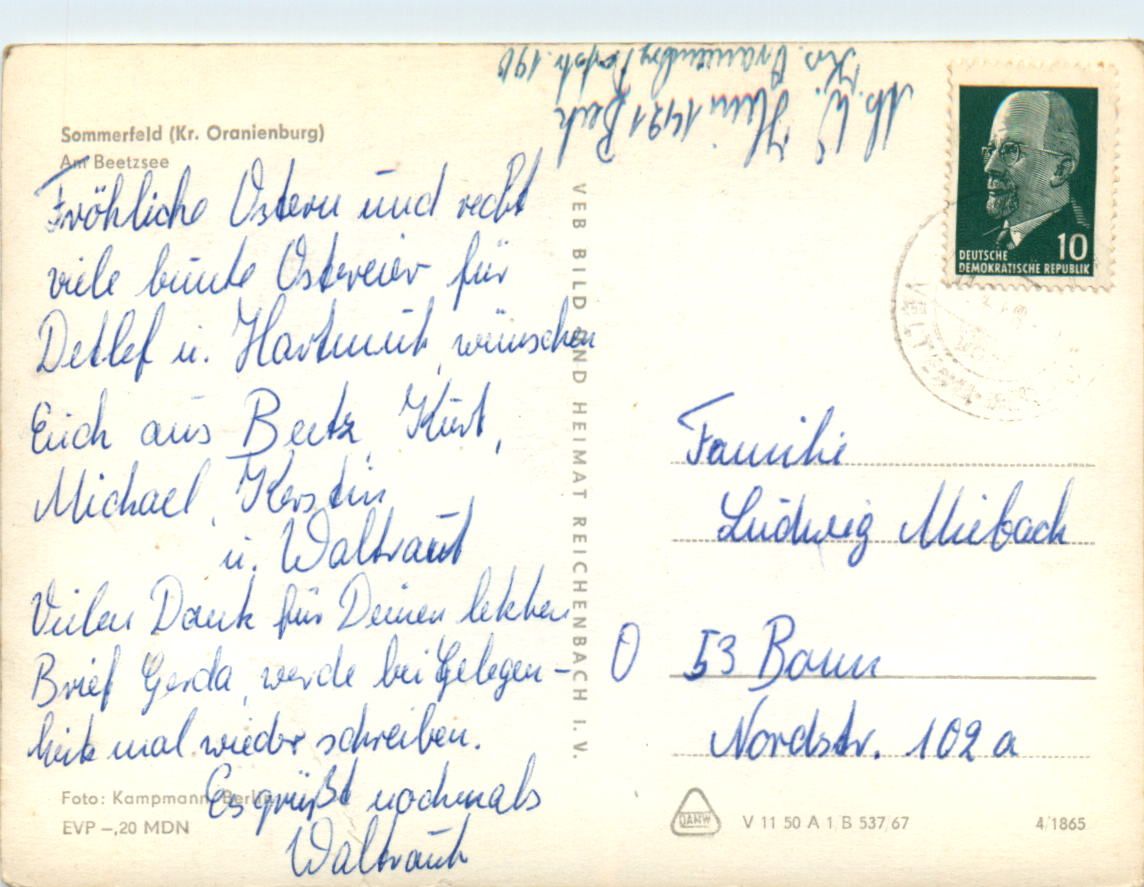 Sommerfeld (Kr. Oranienburg)
Am Beetzsee
Fröhliche Ostern und recht
viele bunte Ostereier für
Detlef u. Hartmut, wünschen
Euch aus Beetz Kurt,
Michael, Kerstin
u. Waltraut
Vielen Dank für Deinen letzten
Brief Gerda, werde bei Gelegen-
heit mal wieder schreiben.
Es grüßt nochmals
Waltraut
Foto: Kampmann, Berlin
EVP –,20 MDN
VEB BILD UND HEIMAT REICHENBACH I. V.
1421 Beetz
Krs. Oranienburg Dorfstr. 19
DEUTSCHE
DEMOKRATISCHE REPUBLIK
10
Familie
Ludwig Miebach
53 Bonn
Nordstr. 102 a
DAMW
V 11 50 A 1/B 537/67
4/1865